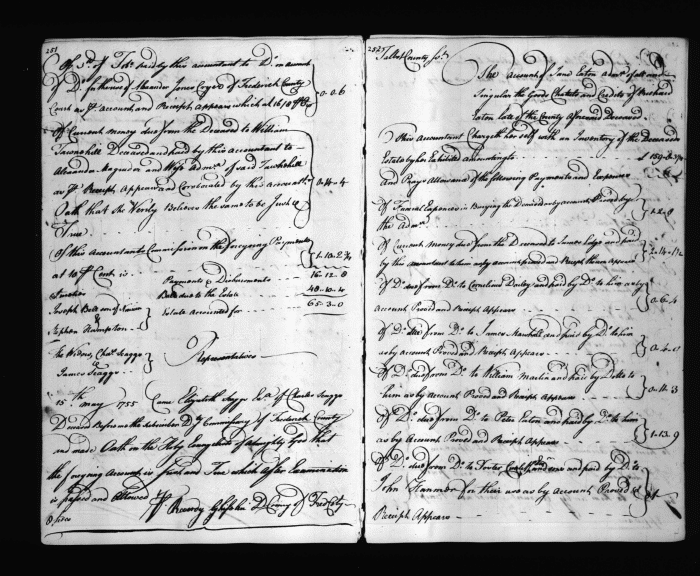 251
Of Do. of Tob. paid by this accountant to Do. on account
of Do. for the use of Alexander Jones Cryer of Frederick County
Court as pr. Account and Receipt appears which at
0..0..6
Of Current money due from the Deceased to William
Tawnihill Deceased and paid by this accountant to
Alexander Magruder and Wife Admx. of said Tawnihill
as pr. Receipt Appears and Corroborated by this accountants
0..14..4
Oath that she Verily Believes the same to be Just &
True
Of this Accountants Commission on the foregoing Payments
at 10 pr. Cent. is
1..10..2 3/4
Payments & Disbursments 16..12..8
Ballance due to the Estate 48..10..4
Estate Accounted for 65..3..0
Sureties
Joseph
&
Stephen Hampton
The Widow, Chas. Scaggs
James Scaggs
Representatives
15th may 1755 Came Elizabeth Scaggs Exx. of Charles Scaggs
Deceased Before me the subscriber Dy. Commissary of Frederick County
and made Oath on the Holy Evangelists of Almighty God that
the foregoing Account is Just and True which after Examination
is passed and Allowed pr.
Dy. Comry. of Fred. Cty.
252
Talbot County Sct.
The Account of Jane Eaton admx. of all and
Singular the Goods Chattels and Credits of Richard
Eaton late of the County aforesaid Deceased
This Accountant Chargeth her self with an Inventory of the Deceaseds
Estate by her Exhibited amounting to
And Prays Allowance of the following Payments and Expences
Of Funeral Expences in Burying the Deceased as by account Proved by
the Admx.
Of Current Money due from the Deceased to James and paid
by this accountant to him as by account proved and Receipt thereon appears
Of Do. due from Do. to Cornelius Dailey and paid by Do. to him as by
account Proved and Receipt Appears
0..6..4
Of Do. due from Do. to James Marshall and paid by Do. to him
as by account Proved and Receipt Appears
Of Do. due from Do. to William Martin and paid by Ditto to
him as by account Proved and Receipt Appears
0..11..3
Of Do. due from Do. to Peter Eaton and paid by Do. to him
as by Account Proved and Receipt Appears
1..13..9
Of Do. due from Do. to Foster Cunliffe and Sons and paid by Do. to
John Hanmer for their use as by account Proved &
Receipt Appears